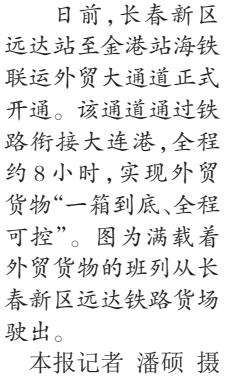 日前，长春新区
远达站至金港站海铁
联运外贸大通道正式
开通。该通道通过铁
路衔接大连港，全程
约8小时，实现外贸
货物“一箱到底、全程
可控”。图为满载着
外贸货物的班列从长
春新区远达铁路货场
驶出。
本报记者 潘硕 摄